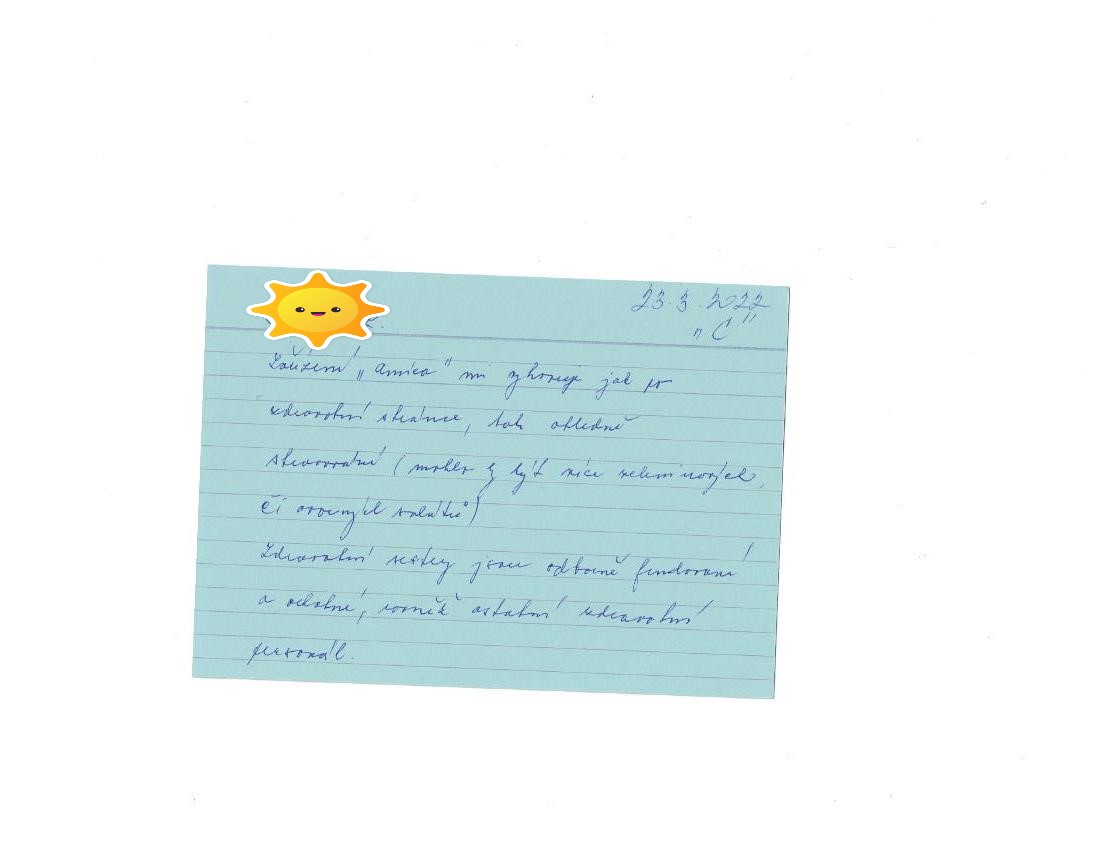 23.3.2022
„C"
Zařízení „Amica" mi vyhovuje jak po
zdravotní stránce, tak ohledně
stravování (mohlo by být více zeleninových,
či ovocných salátů)
Zdravotní sestry jsou odborně fundované
a ochotné, rovněž ostatní zdravotní
personál.